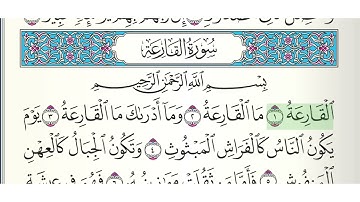 سُورَةُ القَارِعَةِ
بِسْمِ اللَّهِ الرَّحْمَٰنِ الرَّحِيمِ
الْقَارِعَةُ ١ مَا الْقَارِعَةُ ٢ وَمَا أَدْرَىٰكَ مَا الْقَارِعَةُ ٣ يَوْمَ
يَكُونُ النَّاسُ كَالْفَرَاشِ الْمَبْثُوثِ ٤ وَتَكُونُ الْجِبَالُ كَالْعِهْنِ
الْمَنفُوشِ ٥ فَأَمَّا مَن ثَقُلَتْ مَوَٰزِينُهُ ٦ فَهُوَ فِي عِيشَةٍ